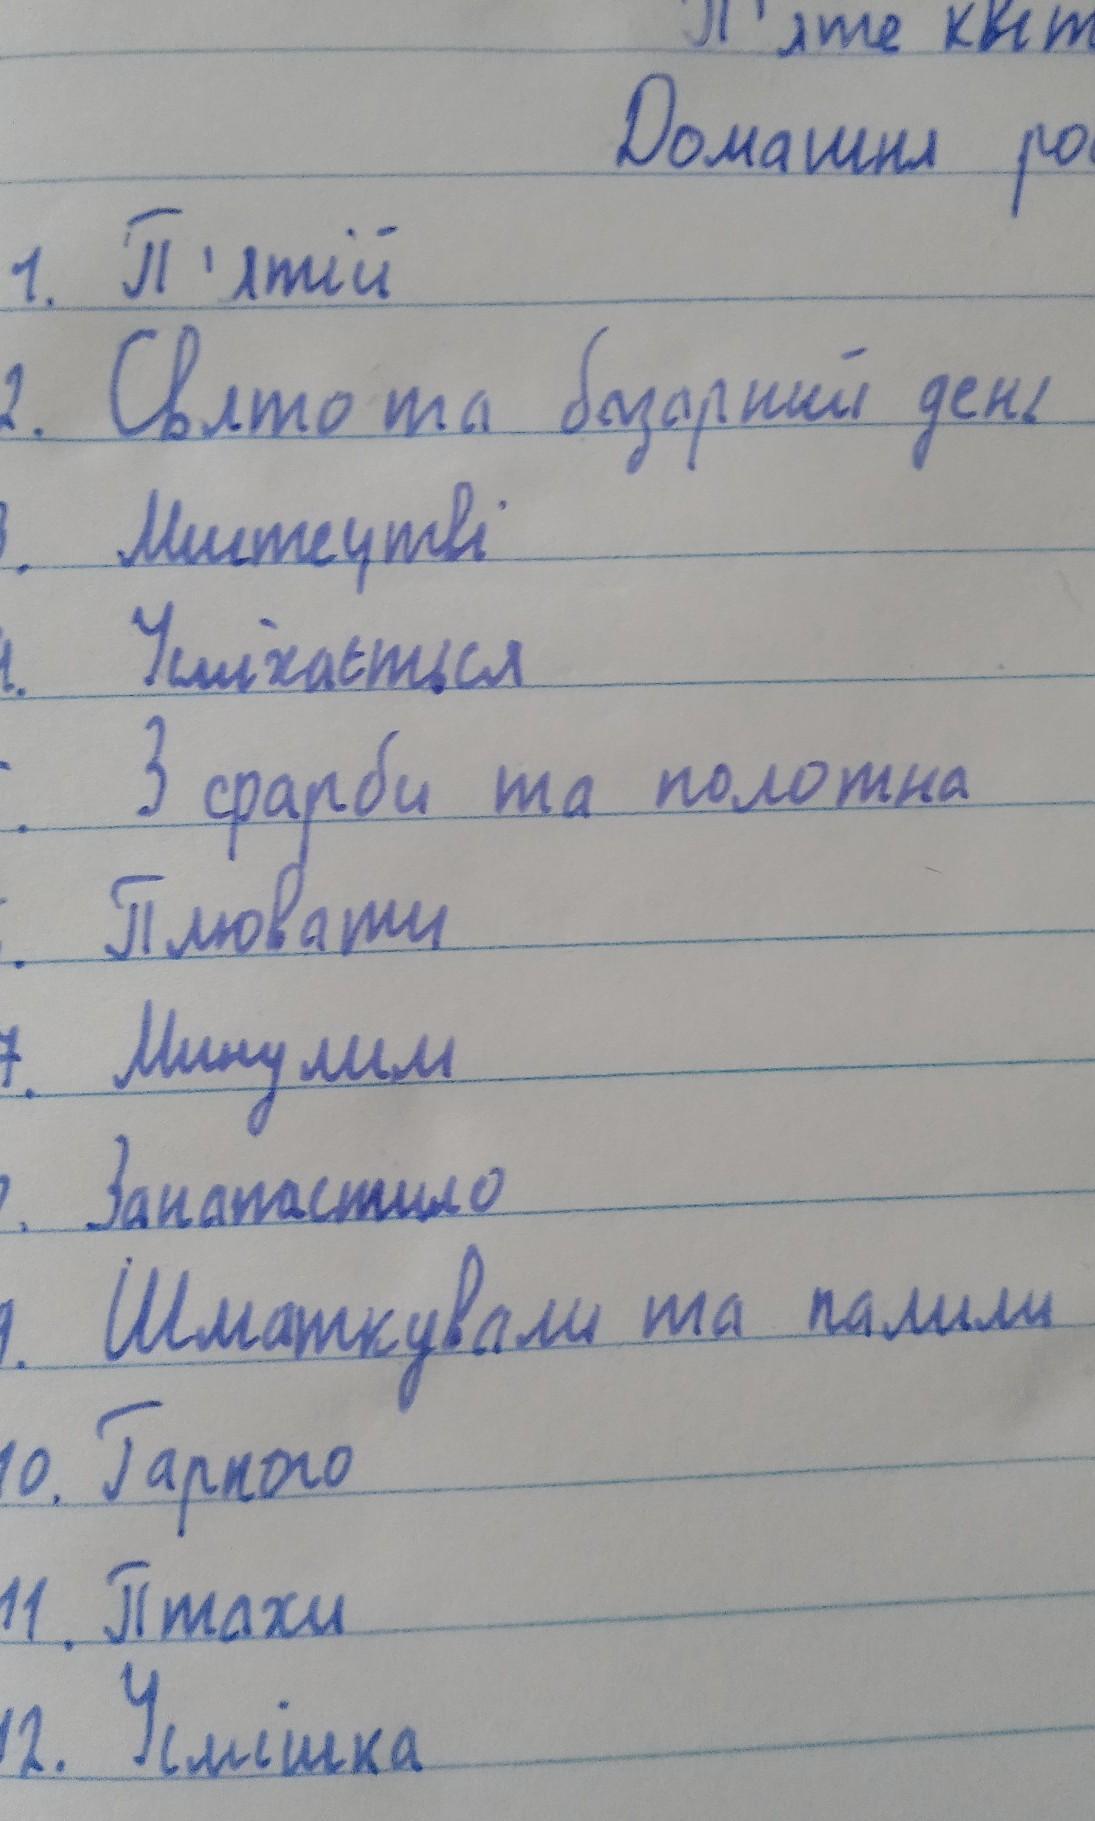 П'яте квіт
Домашня ро
1. П'ятій
2. Свято та базарний день
3. Мистецтві
4. Усміхається
З фарби та полотна
Плювати
7. Минулим
Занапастило
9. Шматкували та палили
10. Гарного
11. Птахи
12. Усмішка